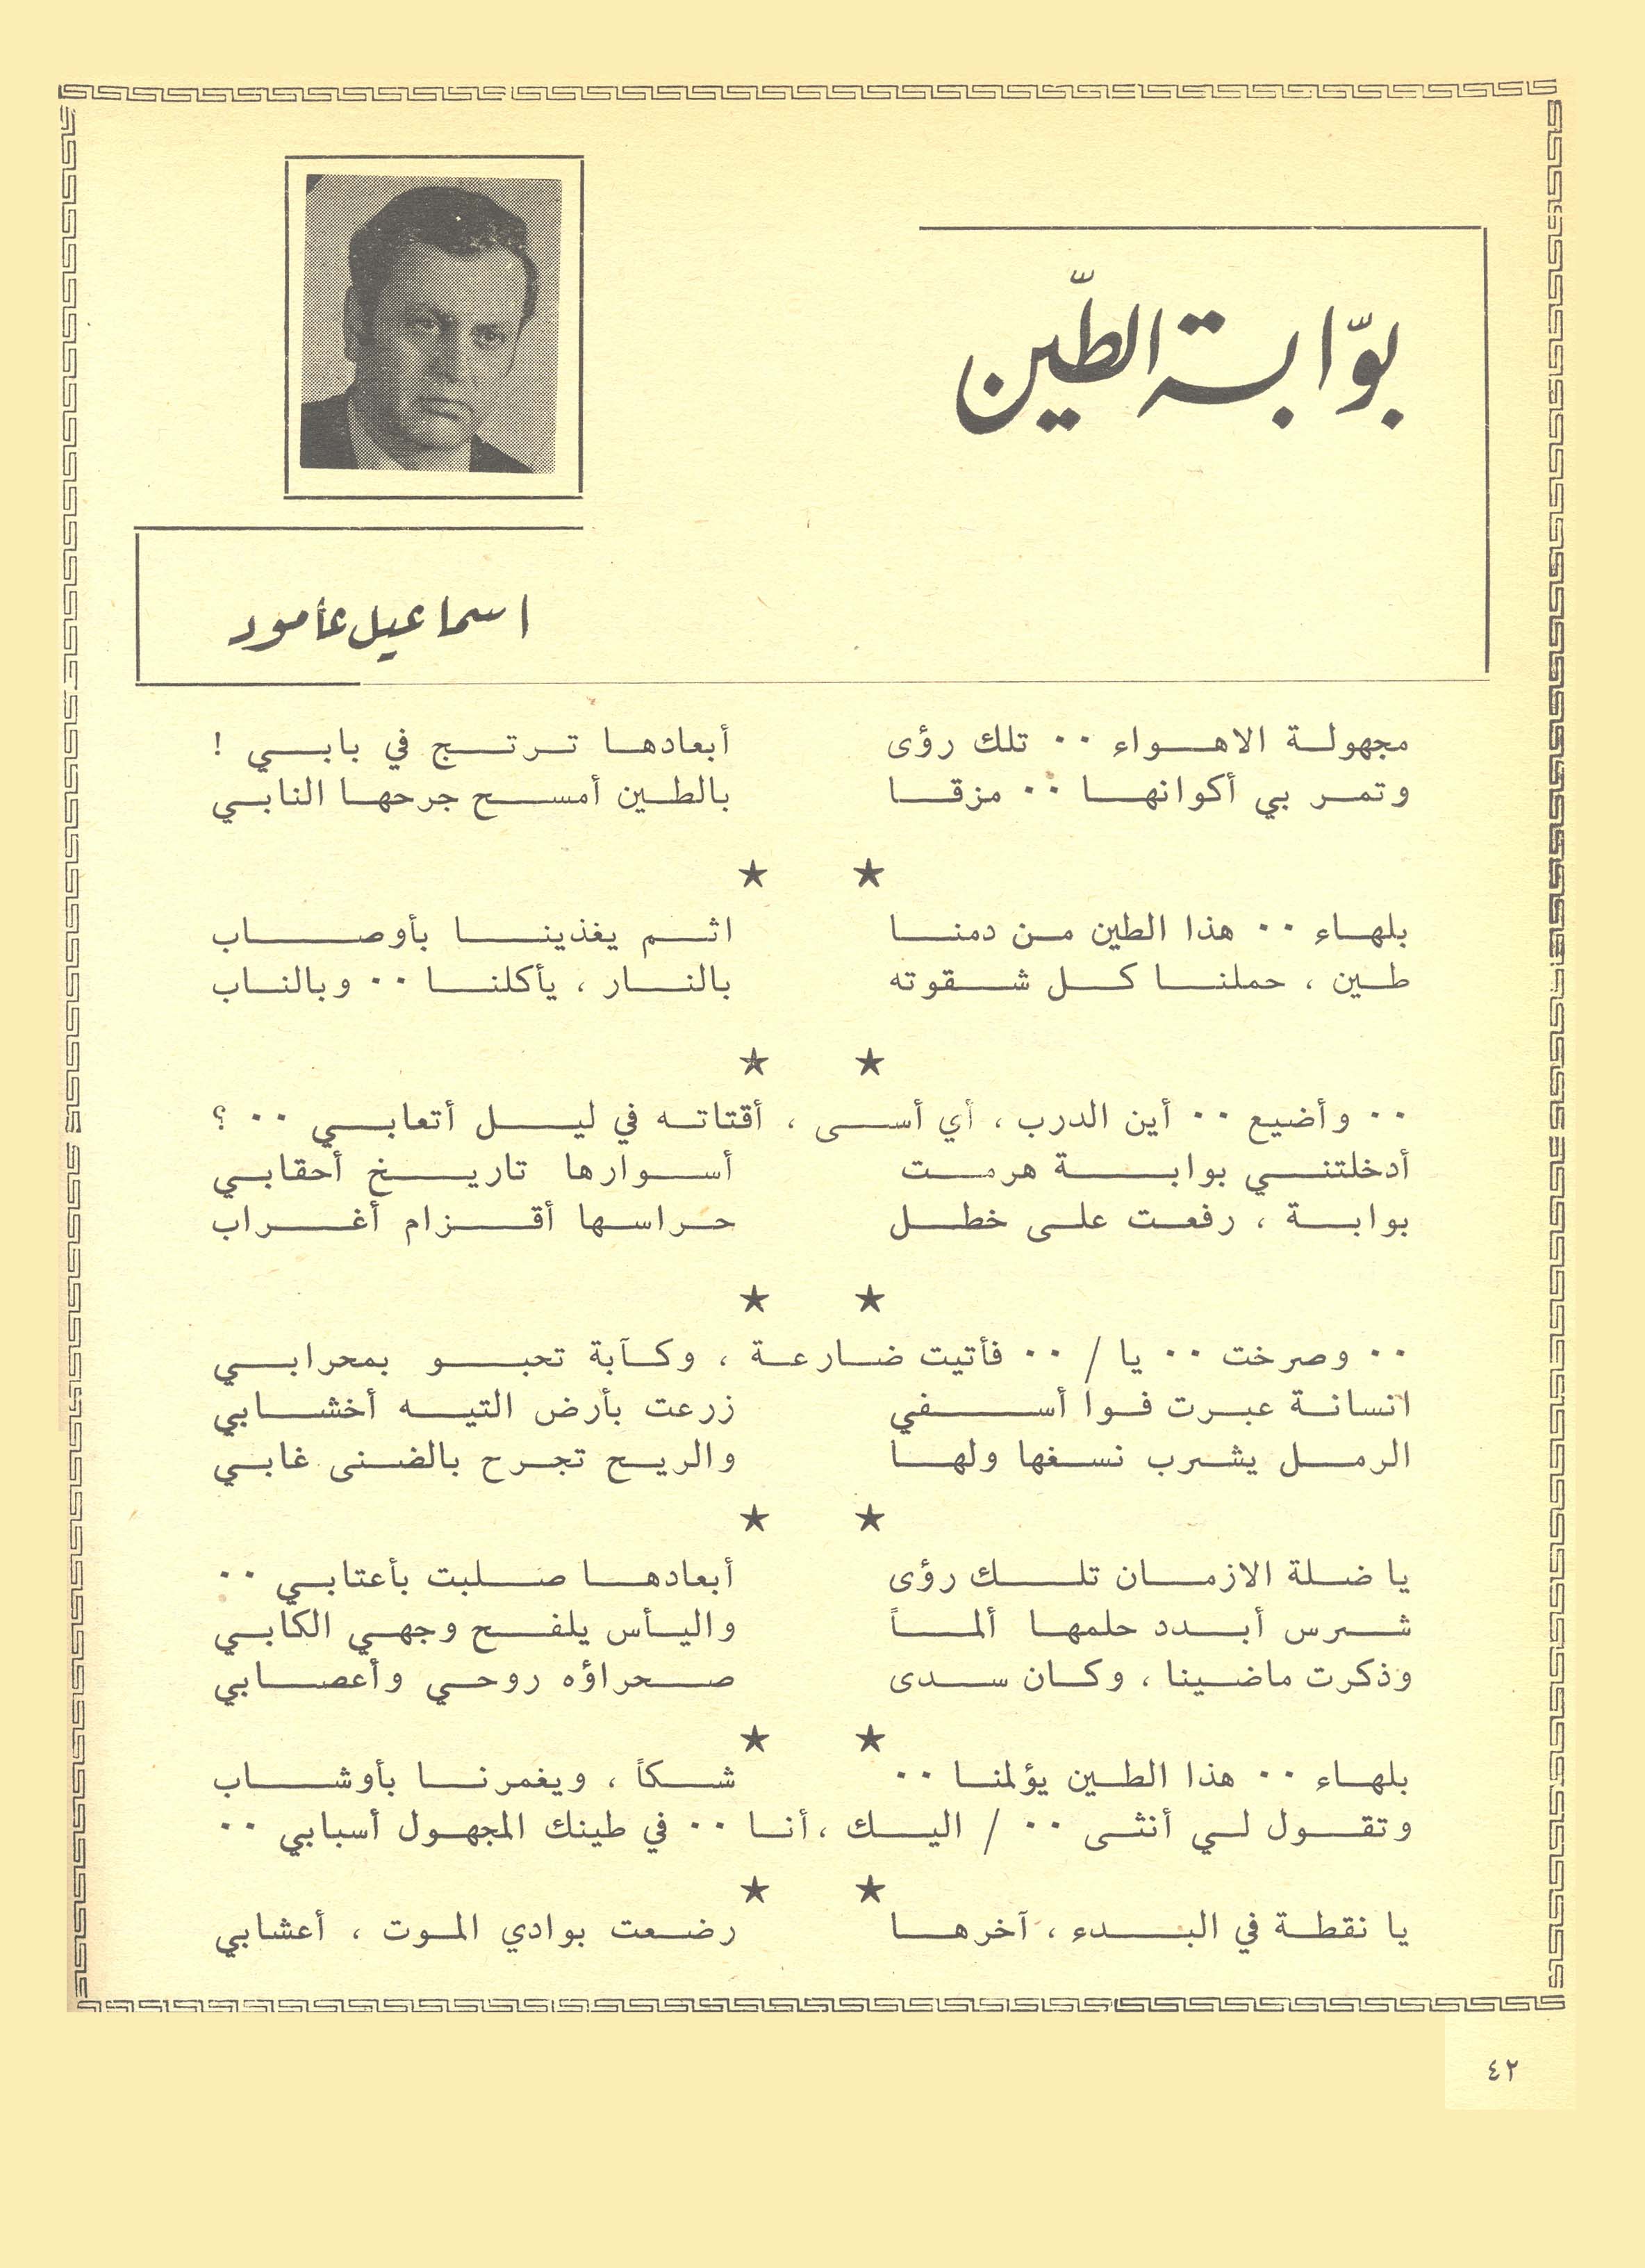 بوّابة الطّين
اسماعيل عامود
مجهولة الاهواء ٠٠ تلك رؤى أبعادها ترتج في بابي !
وتمر بي أكوانها ٠٠ مزقا بالطين أمسح جرحها النابي
★ ★
بلهاء ٠٠ هذا الطين من دمنا اثم يغذينا بأوصاب
طين ، حملنا كل شقوته بالنار ، يأكلنا ٠٠ وبالناب
★ ★
٠٠ وأضيع ٠٠ أين الدرب ، أي أسى ، أقتاته في ليل أتعابي ٠٠ ؟
أدخلتني بوابة هرمت أسوارها تاريخ أحقابي
بوابة ، رفعت على خطل حراسها أقزام أغراب
★ ★
٠٠ وصرخت ٠٠ يا / ٠٠ فأتيت ضارعة ، وكآبة تحبو بمحرابي
انسانة عبرت فوا أسفي زرعت بأرض التيه أخشابي
الرمل يشرب نسغها ولها والريح تجرح بالضنى غابي
★ ★
يا ضلة الازمان تلك رؤى أبعادها صلبت بأعتابي ٠٠
شرس أبدد حلمها ألماً واليأس يلفح وجهي الكابي
وذكرت ماضينا ، وكان سدى صحراؤه روحي وأعصابي
★ ★
بلهاء ٠٠ هذا الطين يؤلمنا ٠٠ شكاً ، ويغمرنا بأوشاب
وتقول لي أنثى ٠٠ / اليك ، أنا ٠٠ في طينك المجهول أسبابي ٠٠
★ ★
يا نقطة في البدء ، آخرها رضعت بوادي الموت ، أعشابي
٤٢